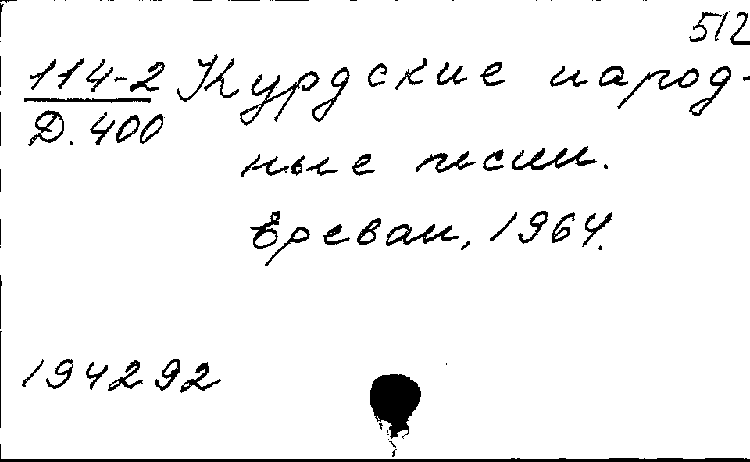 512
114-2 Курдские народ-
Д. 400
ные песни.
Ереван, 1964.
194292